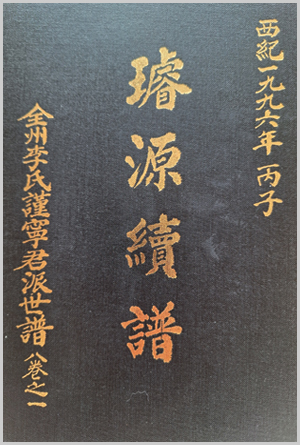 西紀一九九六年 丙子
璿源續譜
全州李氏謹寧君派世譜 八卷之一